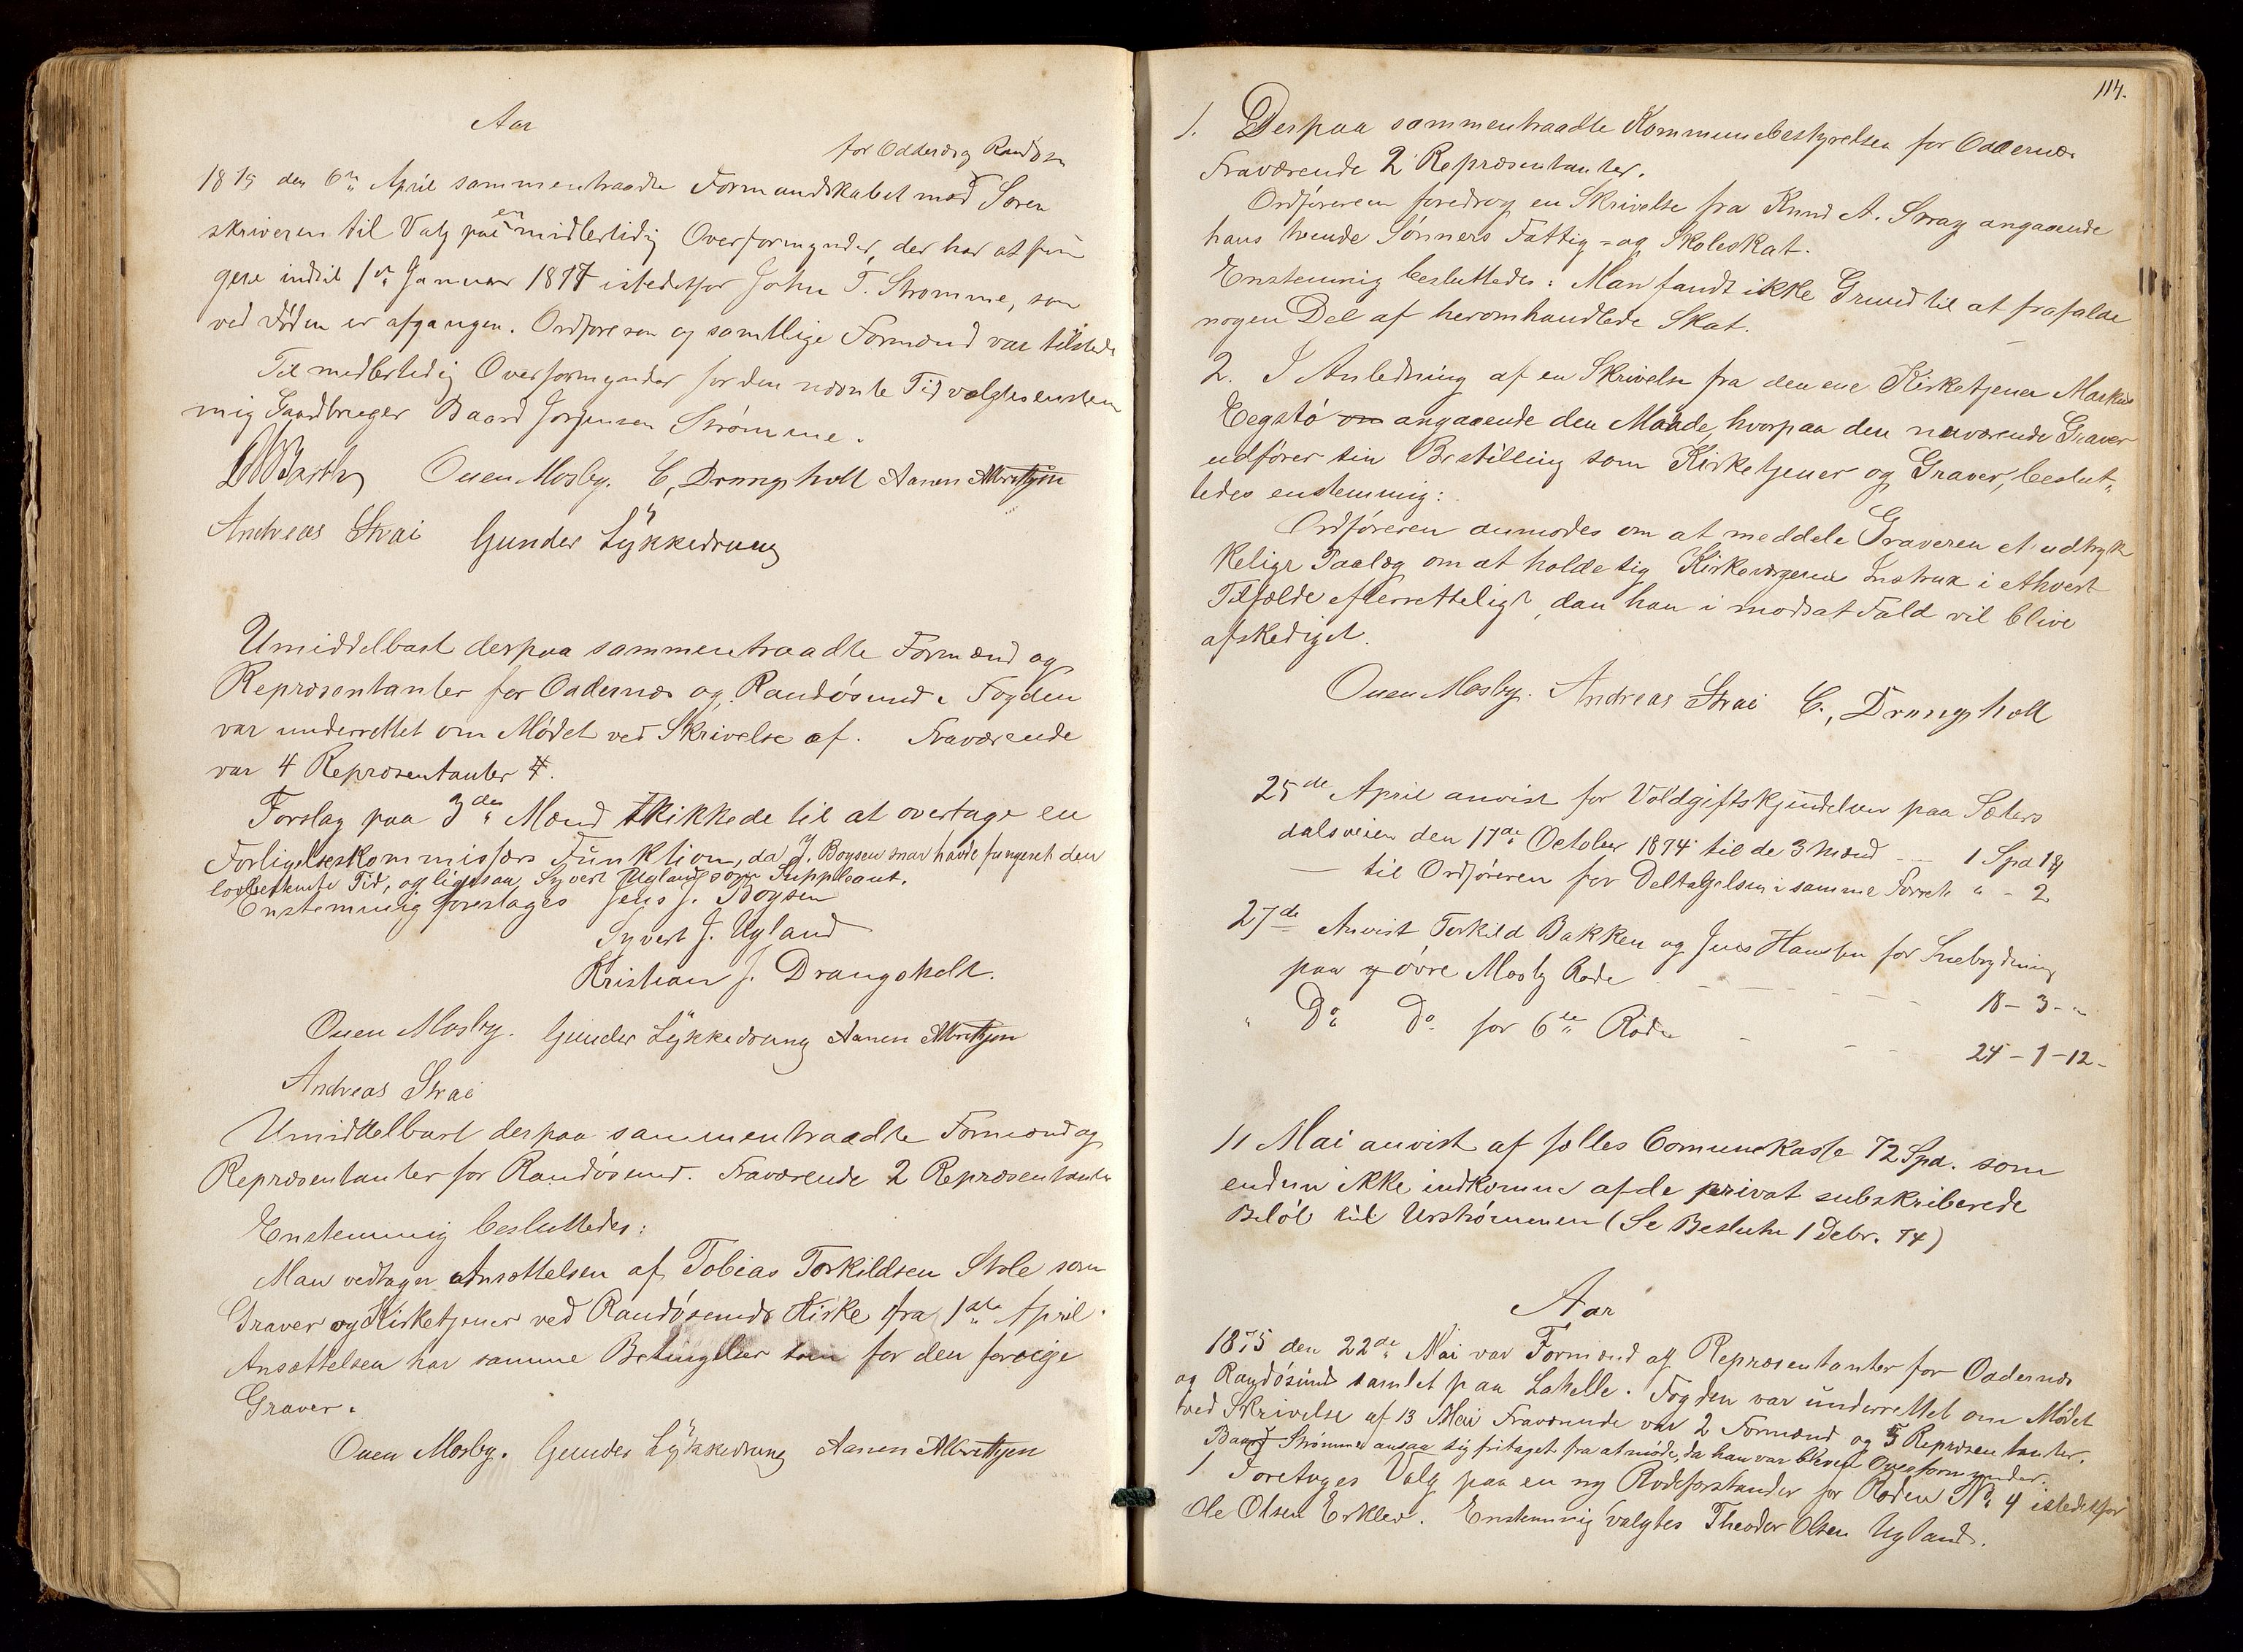 Aar
for Oddernes og Randösun
1875 den 6te April sammentraadte Formandskabet med Soren
skriveren til Valg paa en midlertidig Overformynder, der har at fun
gere indtil 1ste Januar 1877 istedetfor John T. Strømme, som
ved Döden er afgangen. Ordföreren og samtlige Formænd var tilstede
Til midlertidig Overformynder for den nævnte Tid valgtes enstem
mig Gaardbruger Baard Jorgensen Strömme.
Ouen Mosby. C, Drangsholt Aanen Albrettsen
Andreas Strai Gunder Lykkedrang
Umiddelbart derpaa sammentraadte Formænd og
Repræsentanter for Oddernes og Randösund. Fogden
var underrettet om Mödet ved Skrivelse af. Fraværende
var 4 Repræsentanter 4.
Forslag paa 3de Mænd skikkede til at overtage en
Forligelseskommissærs Funktion, da J. Boysen snar havde fungeret den
lovbestemte Tid, og ligesaa Syvert Ugland som Suppleant.
Enstemmig foreslages Jens J. Boysen
Syvert J. Ugland
Kristian J. Drangsholt.
Ouen Mosby. Gunder Lykkedrang Aanen Albrettsen
Andreas Strai
Umiddelbart derpaa sammentraadte Formænd og
Repræsentanter for Randösund. Fraværende 2 Repræsentanter
Enstemmig besluttedes:
Man vedtager Ansættelsen af Tobias Torkildsen Stole som
Graver og Kirketjener ved Randösunds Kirke fra 1ste April.
Ansættelsen har samme Betingelser som for den forrige
Graver.
Ouen Mosby. Gunder Lykkedrang Aanen Albrettsen
114.
1. Derpaa sammentraadte Kommunebestyrelsen for Oddernes
Fraværende 2 Repræsentanter.
Ordföreren foredrog en Skrivelse fra Knud A. Stray angaaende
hans tvende Sönners Fattig- og Skoleskat.
Enstemmig besluttedes: Man fandt ikke Grund til at frafalde
nogen Del af heromhandlede Skat.
2. I Anledning af en Skrivelse fra den ene Kirketjener Markus
Eegstö om angaaende den Maade, hvorpaa den nuværende Graver
udförer sin Bestilling som Kirketjener og Graver, beslut-
tedes enstemmig:
Ordföreren anmodes om at meddele Graveren et udtryk
keligt Paalæg om at holde sig Kirkeværgens Instrux i ethvert
Tilfælde efterretteligt, dan han i modsat Fald vil blive
afskediget.
Ouen Mosby. Andreas Strai C., Drangsholt
25de April anvist for Voldgiftskjendelsen paa Sæters
dalsveien den 17de October 1874 til de 3 Mænd - - 1 Spd 19
— til Ordföreren for Deltagelsen i samme Forretn " - 2
27de Anvist Torkild Bakken og Jens Hansen for Snebrydning
paa övre Mosby Rode - - - - 18 - 3 - "
" Do Do for 6te Rode - - - 24 - 1 - 12 -
11 Mai anvist af fælles Comunekasse 72 Spd. som
endnu ikke indkomne af de privat subskriberede
Belöb til Urströmmen (Se Beslutn 1 Debr. 74)
Aar
1875 den 22de Mai var Formænd og Repræsentanter for Oddernes
og Randösund samlet paa Lahelle. Fogden var underrettet om Mödet
ved Skrivelse af 13 Mai Fraværende var 2 Formænd og 5 Repræsentanter.
Baard Strömme ansaa sig fritaget fra at möde, da han var bleven Overformynder.
1 Foretoges Valg paa en ny Rodeforstander for Roden No 4 istedetfor
Ole Olsen Erklev. Enstemmig valgtes Theodor Olsen Ugland.